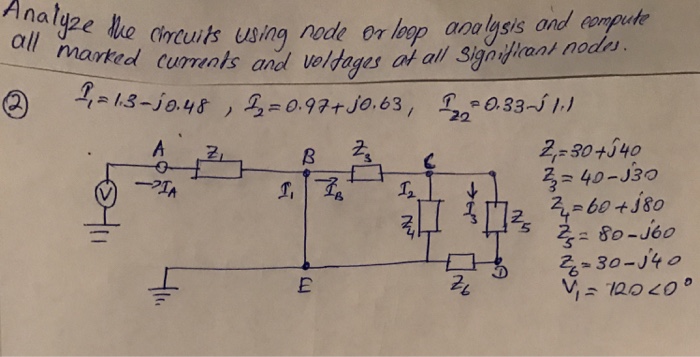 Analyze the circuits using node or loop analysis and compute
all marked currents and voltages at all significant nodes.
② I₁=1.3-j0.48 , I₂=0.97+j0.63, I_Z2=0.33-j1.1
A Z₁ B Z₃ C
V →I_A I₁ I_B I₂ I₃
Z₄ Z₅
E Z₆ D
Z₁=30+j40
Z₃=40-j30
Z₄=60+j80
Z₅=80-j60
Z₆=30-j40
V₁=120<0°